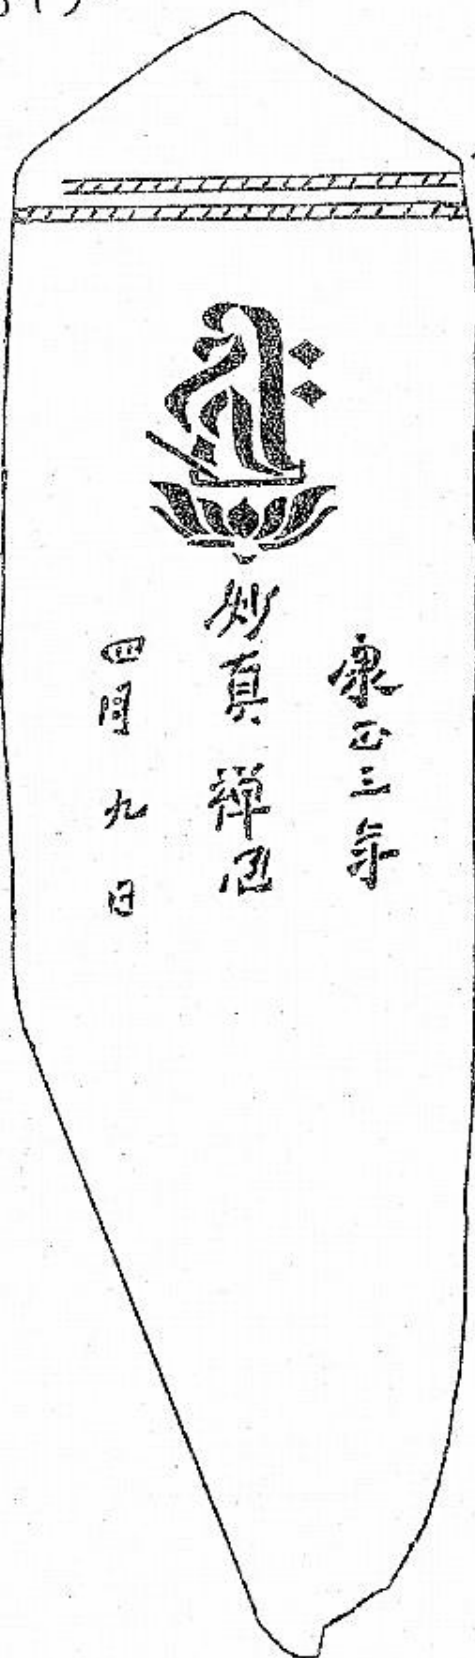 𑖮𑖿𑖨𑖱𑖾
康正三年
妙真禅尼
四月九日